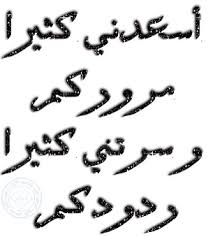 أسعدني كثيرا
مروركم
وسرتني كثيرا
ردودكم